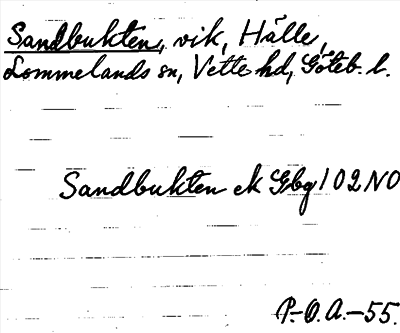 Sandbukten, vik, Hälle,
Lommelands sn, Vette hd, Göteb. l.
Sandbukten ek Gbg 102 NO
P.-O.A.-55.